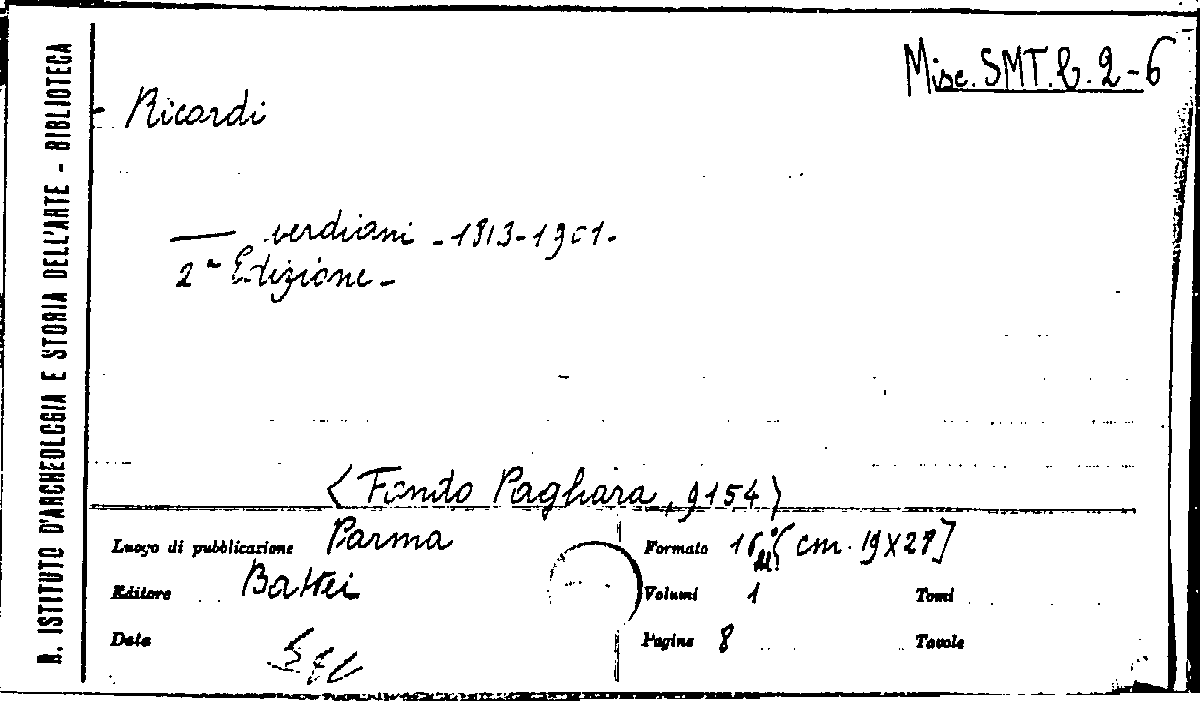 R. ISTITUTO D'ARCHEOLOGIA E STORIA DELL'ARTE - BIBLIOTECA
Misc. SMT. B. 2-6
- Ricordi
— verdiani - 1813-1901.
2ª Edizione -
<Fondo Pagliara, 9154>
Luogo di pubblicazione Parma
Editore Battei
Data
Formato 16° [cm. 19X27]
Volumi 1 Tomi
Pagine 8 Tavole